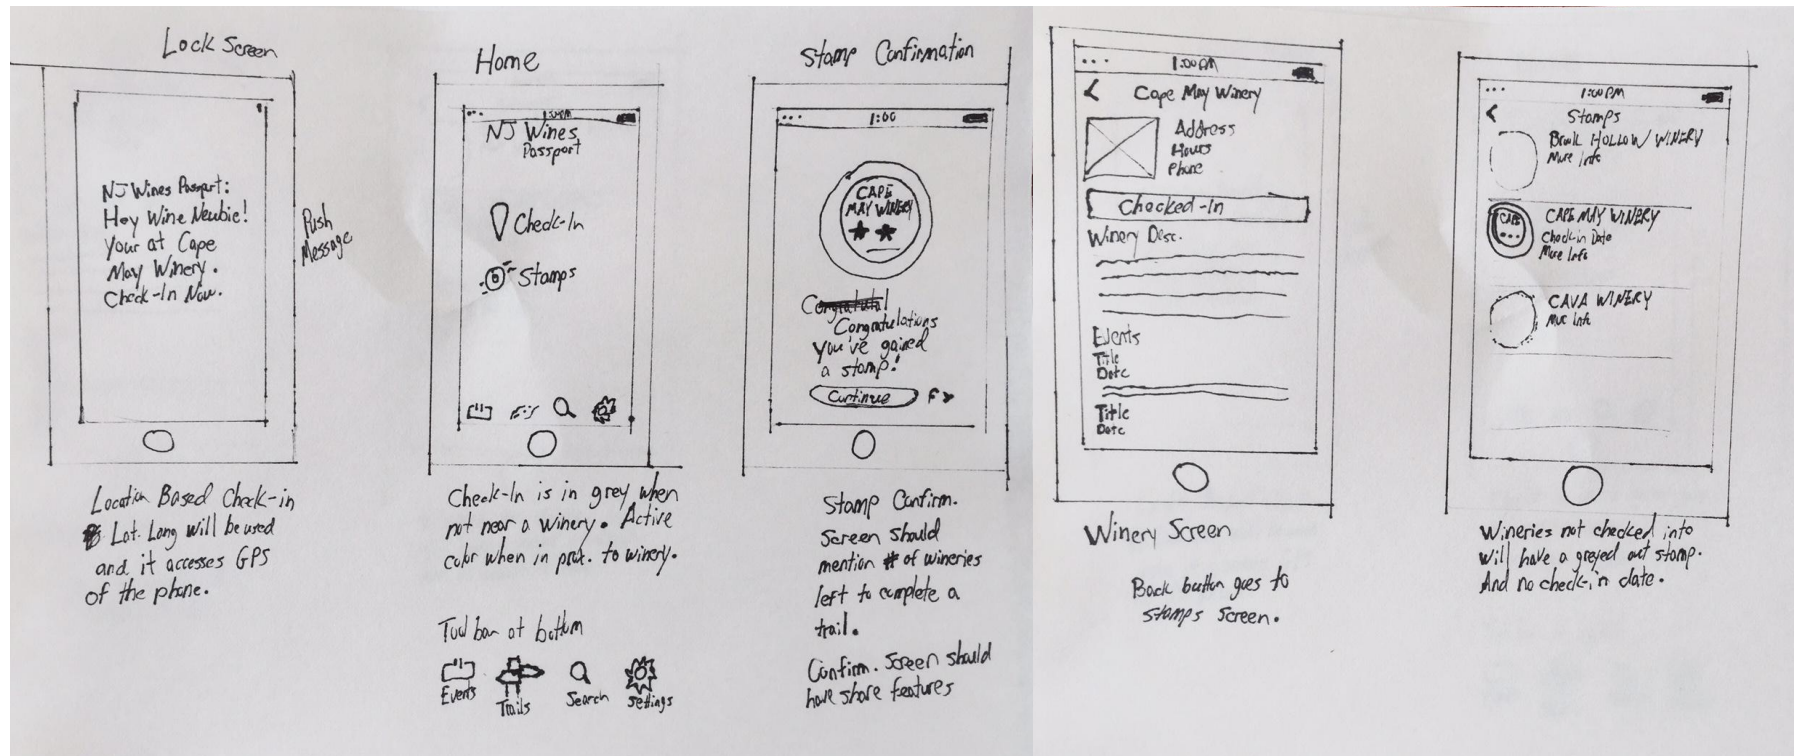 Lock Screen
NJ Wines Passport:
Hey Wine Newbie!
Your at Cape
May Winery.
Check-In Now.
Push
Message
Location Based Check-in
Lat. Long will be used
and it accesses GPS
of the phone.
Home
1:00PM
NJ Wines
Passport
Check-In
Stamps
Check-In is in grey when
not near a winery. Active
color when in prox. to winery.
Tool bar at bottom
Events
Trails
Search
Settings
Stamp Confirmation
1:00
CAPE
MAY WINERY
Congratulations
you've gained
a stamp!
Continue
Stamp Confirm.
Screen should
mention # of wineries
left to complete a
trail.
Confirm. Screen should
have share features
1:00PM
< Cape May Winery
Address
Hours
Phone
Checked-In
Winery Desc.
Events
Title
Date
Title
Date
Winery Screen
Back button goes to
Stamps Screen.
1:00PM
< Stamps
Brook HOLLOW WINERY
More Info
CAPE
CAPE MAY WINERY
Check-in Date
More Info
CAVA WINERY
More Info
Wineries not checked into
will have a greyed out stamp.
And no check-in date.